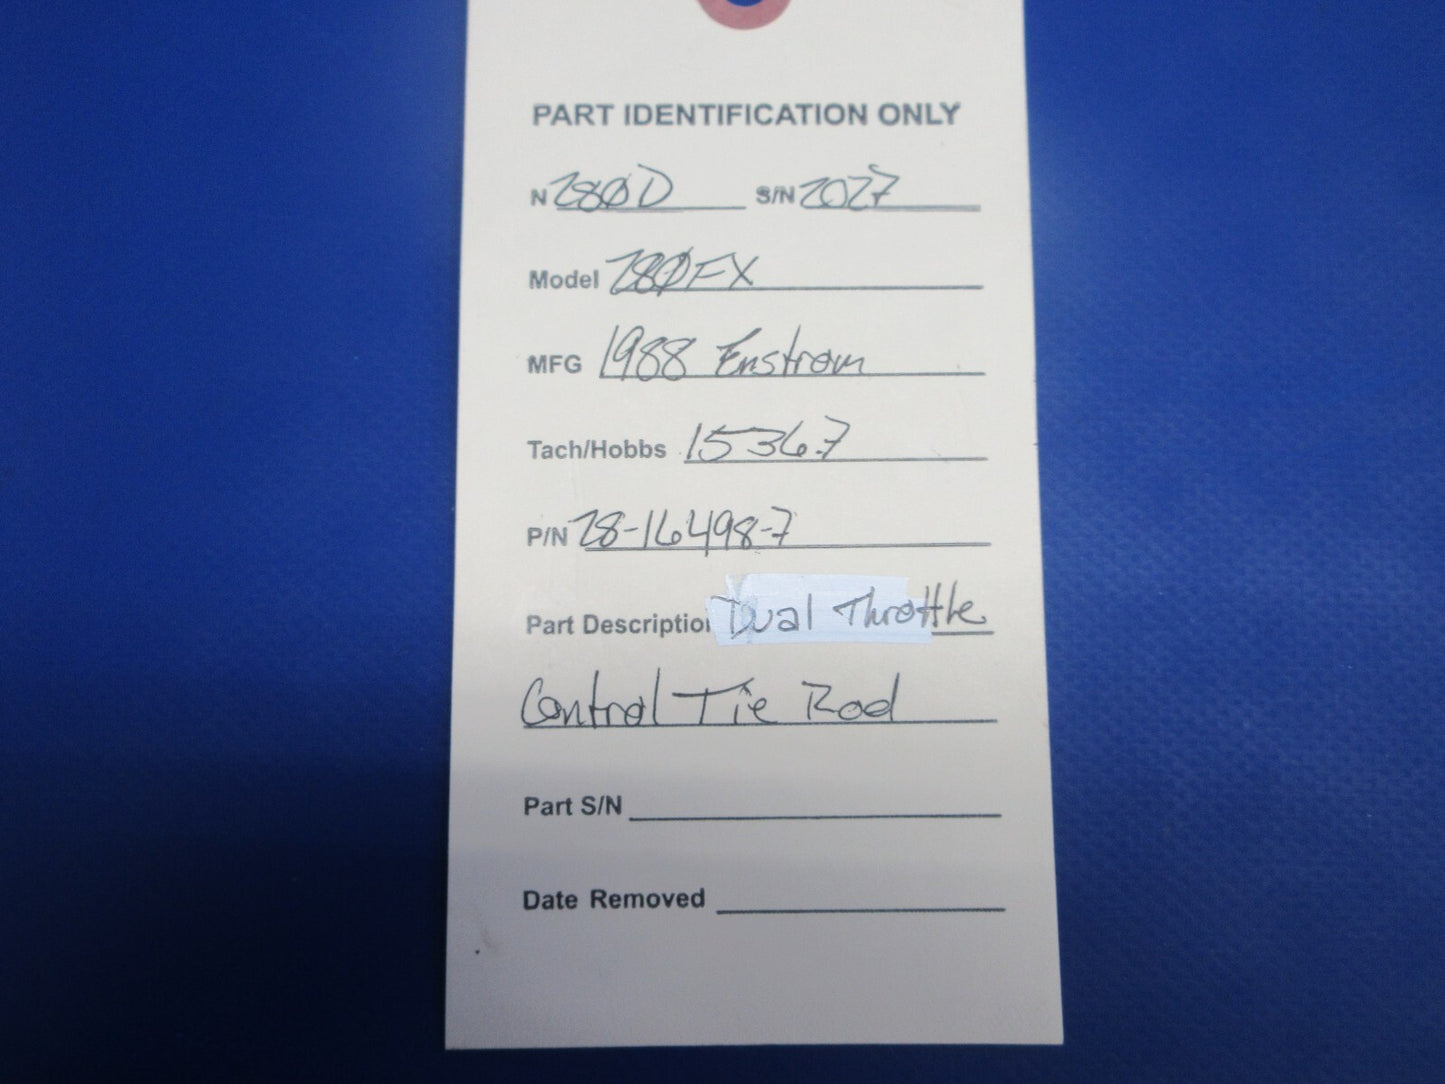 PART IDENTIFICATION ONLY
N 280D S/N 2027
Model 280FX
MFG 1988 Enstrom
Tach/Hobbs 1536.7
P/N 28-16498-7
Part Description Dual Throttle
Control Tie Rod
Part S/N
Date Removed